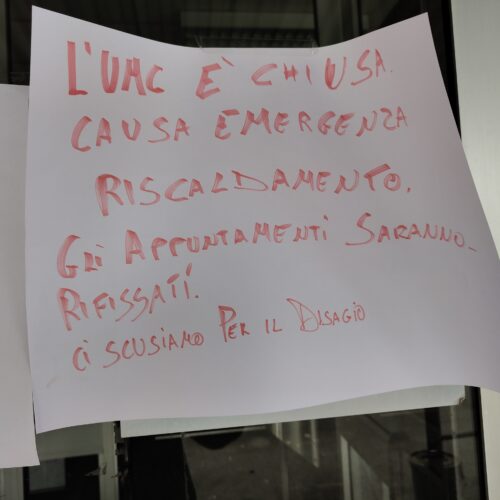 L'UMC E' CHIUSA.
CAUSA EMERGENZA
RISCALDAMENTO.
GLI APPUNTAMENTI SARANNO
RIFISSATI.
CI SCUSIAMO PER IL DISAGIO